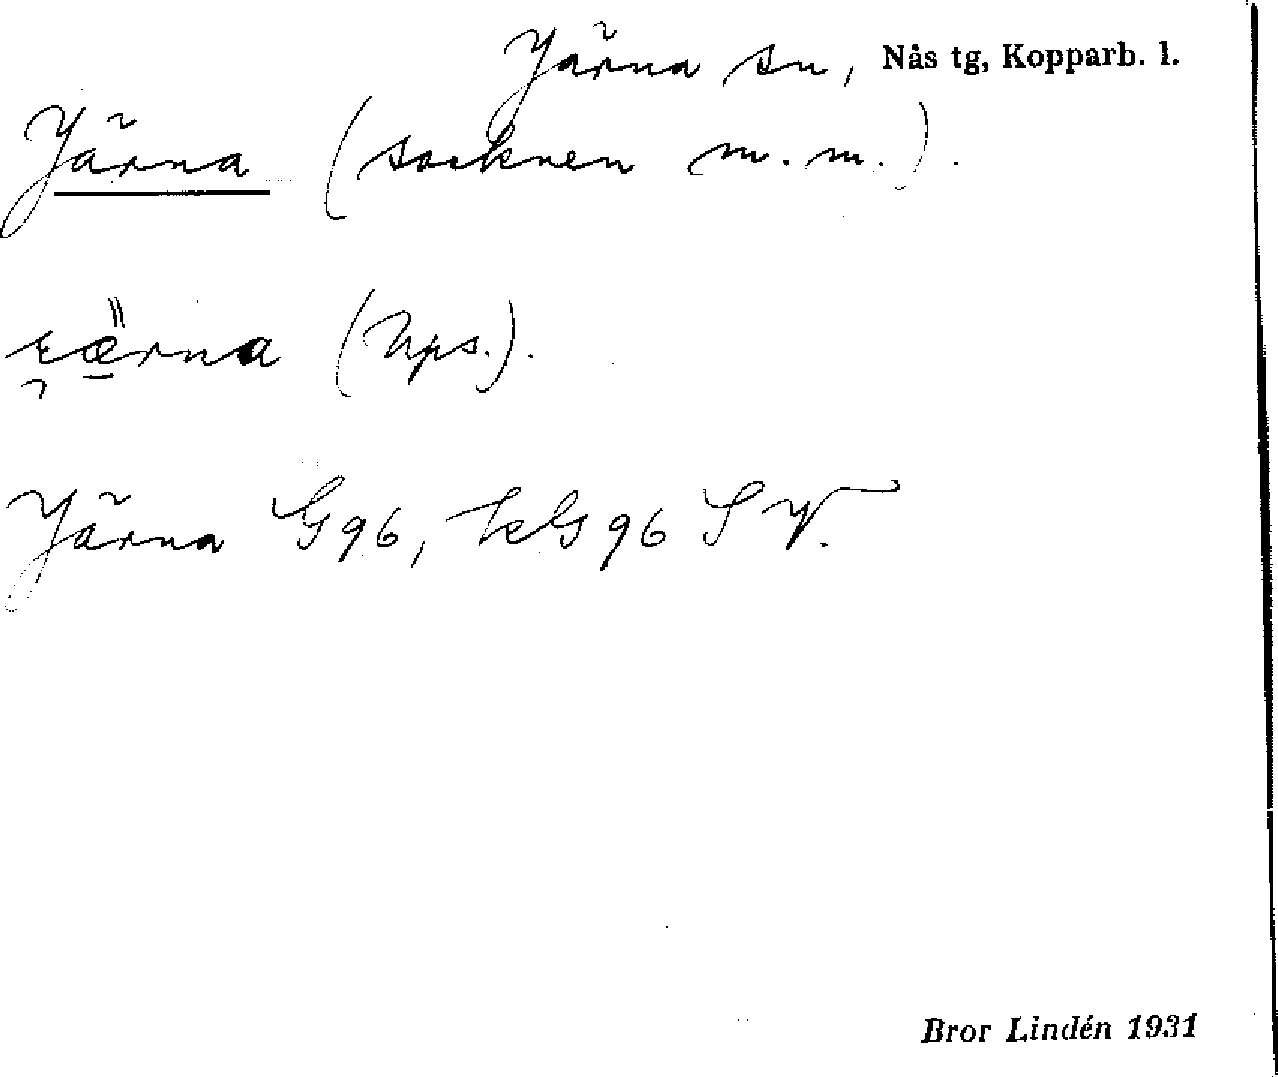 Järna sn, Nås tg, Kopparb. l.
Järna (socknen m. m.).
(Nps.).
Järna G96, kG96 S V.
Bror Lindén 1931